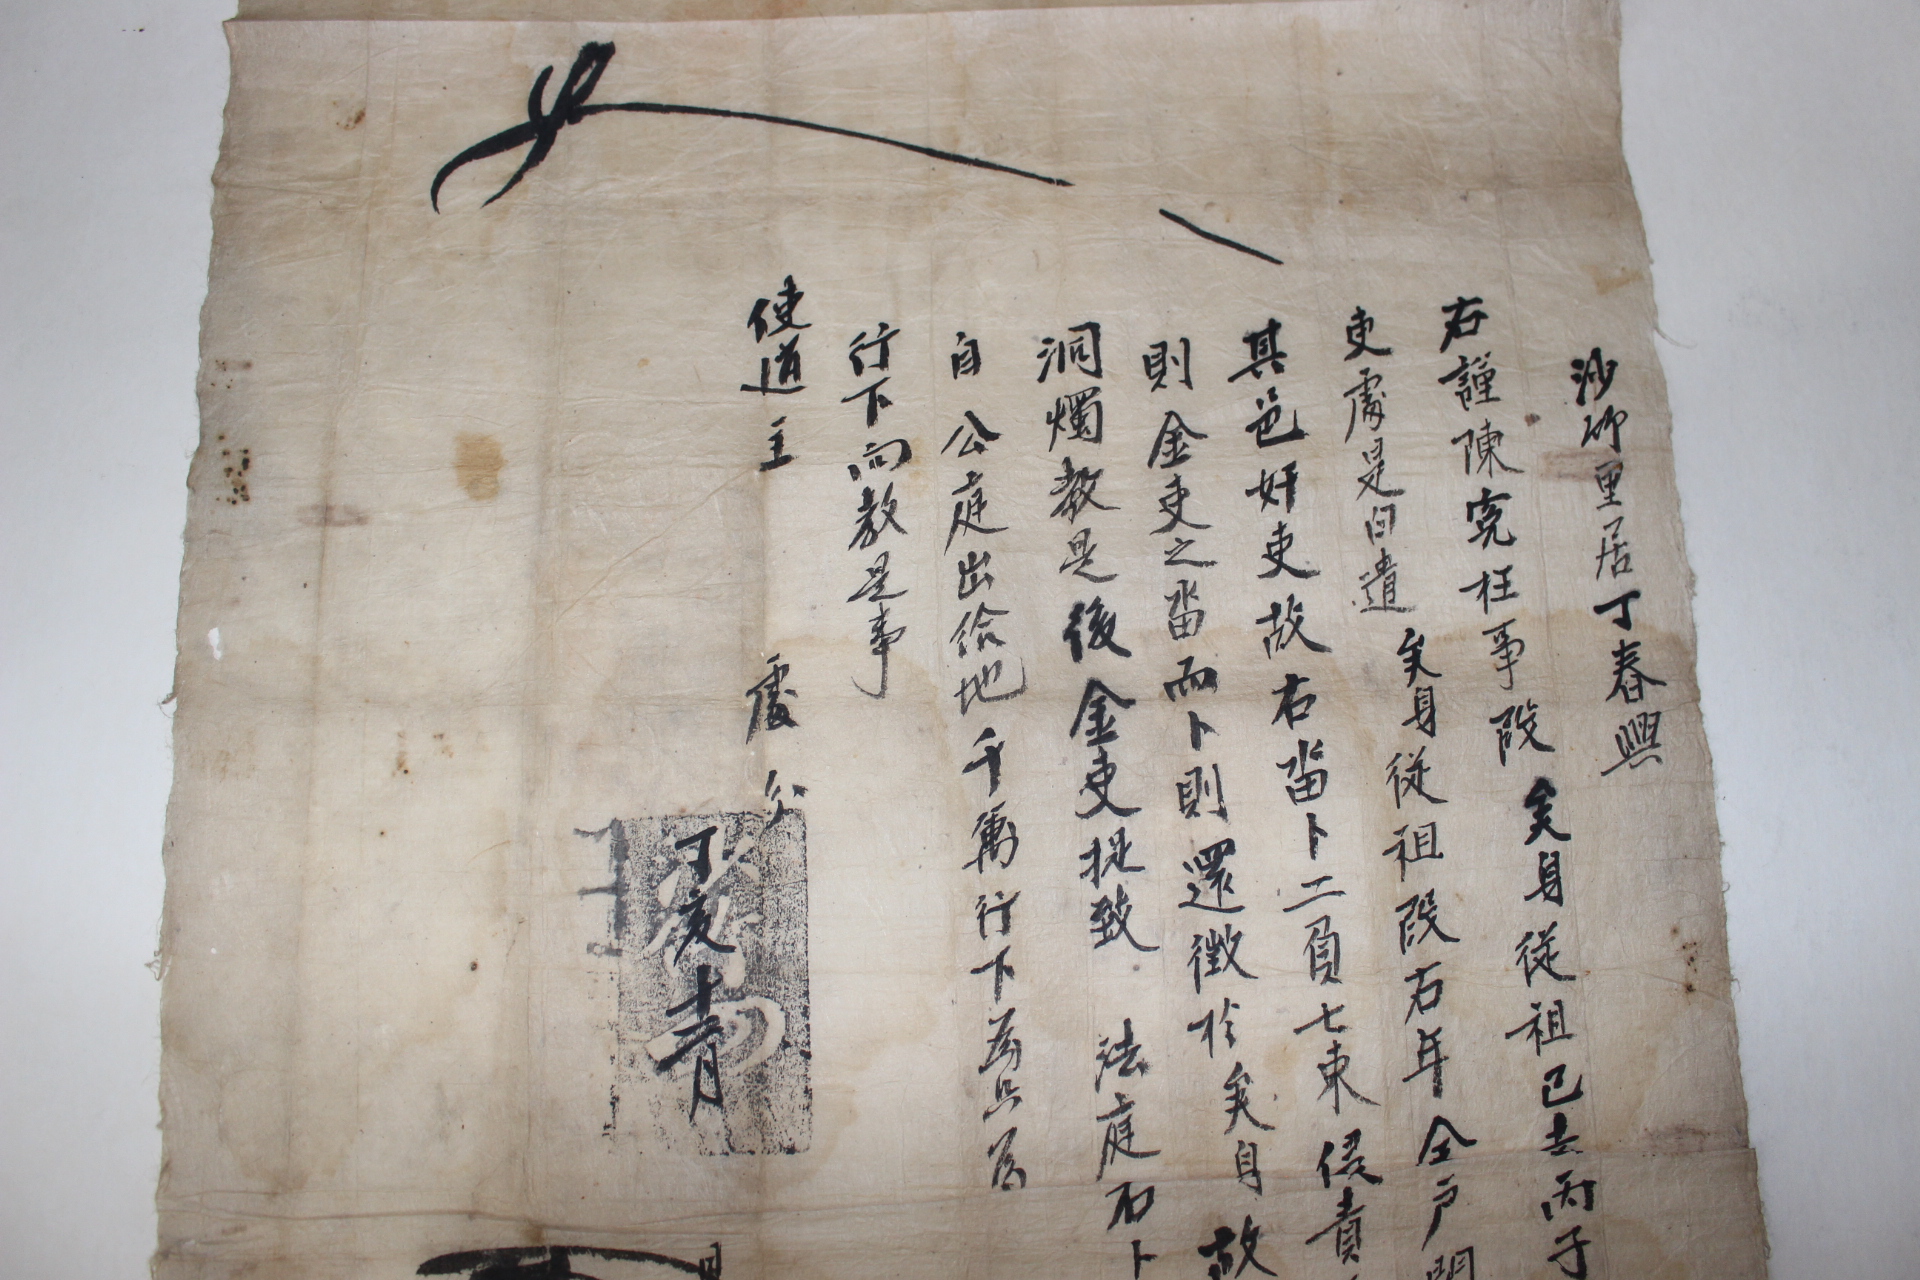 沙卯里居丁春興
右謹陳寃枉事段矣身従祖已去丙子
吏處是白遣矣身従祖段右年全戶閉
其邑奸吏故右畓卜二負七束侵責
則金吏之畓而卜則還徵於矣身故
洞燭教是後金吏捉致 法庭右卜
自公庭出給地千萬行下爲只爲
行下向教是事
使道主 處分
丁亥十一月